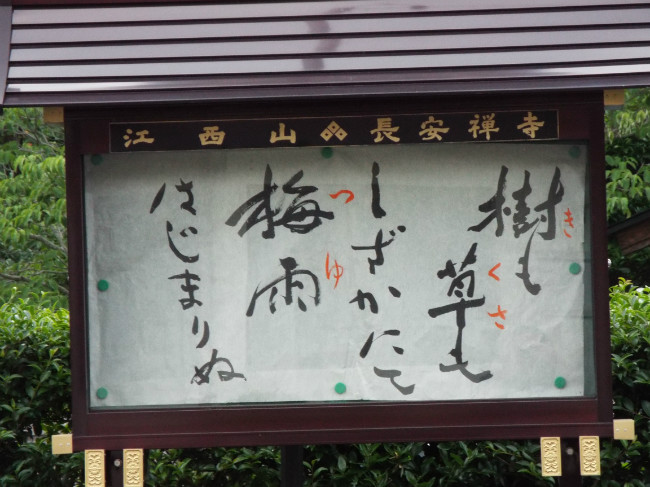 江西山 長安禅寺
樹も
き
草も
くさ
しざかにて
梅雨
つゆ
はじまりぬ